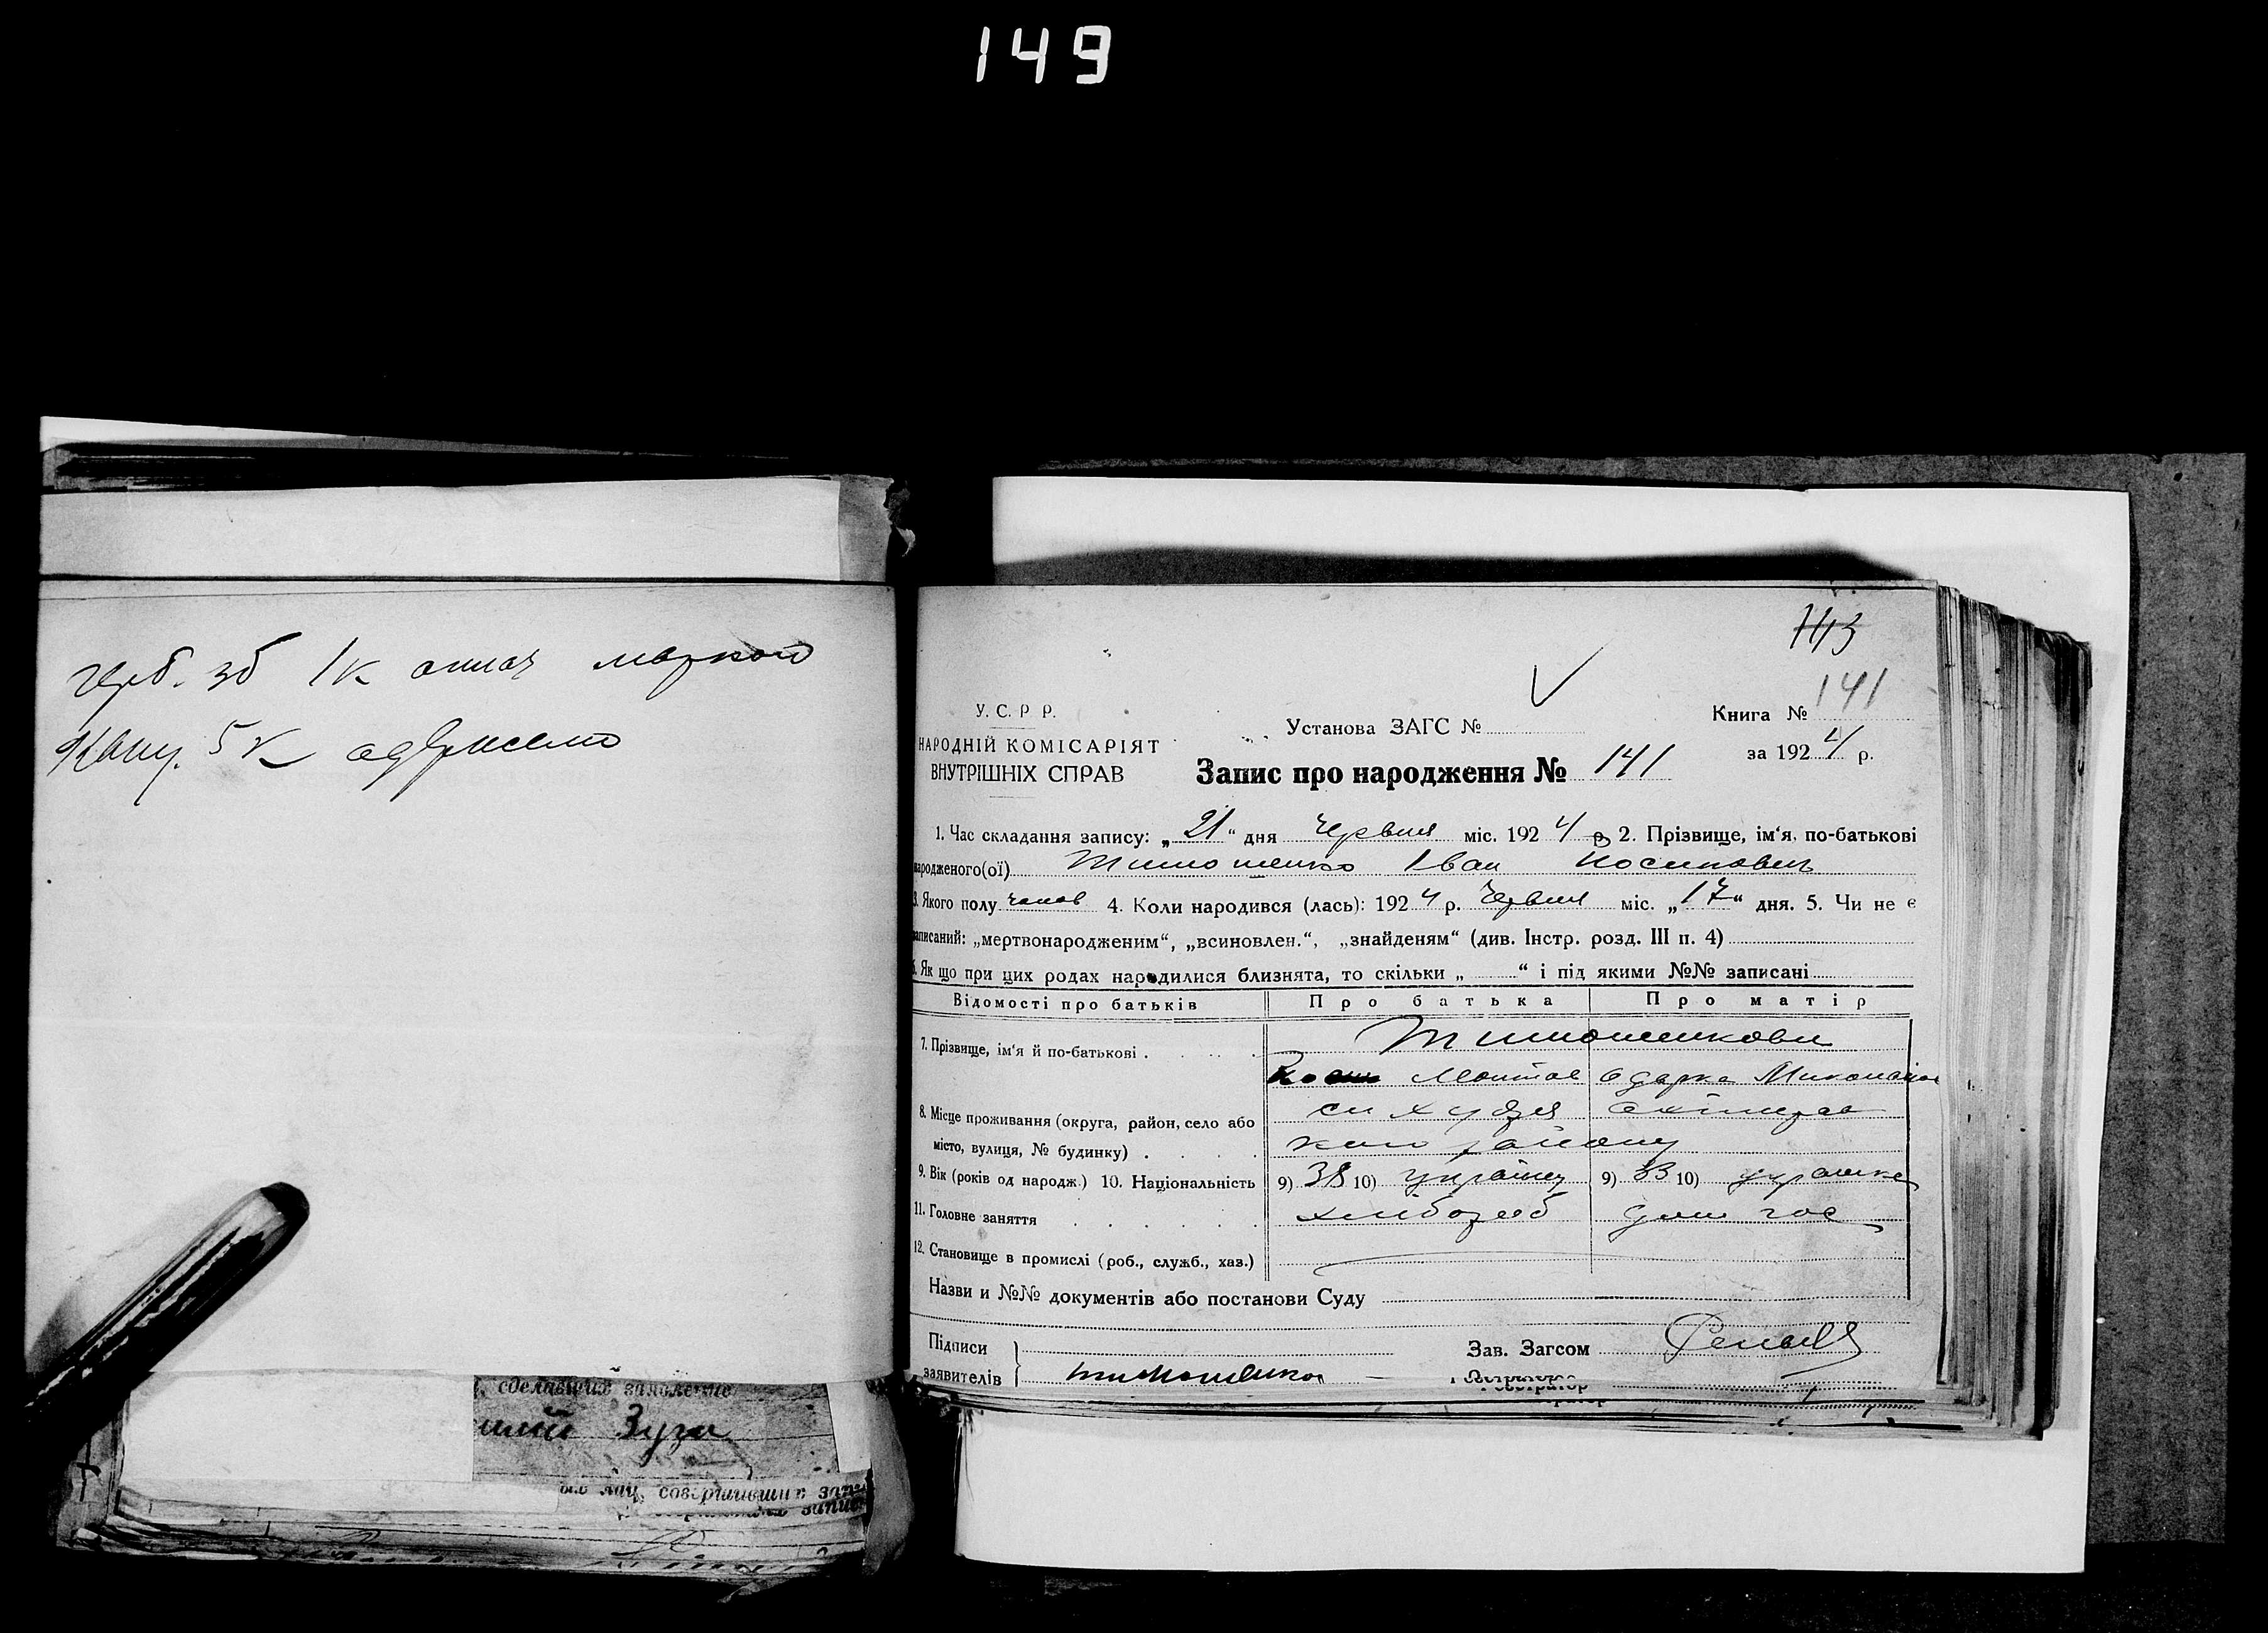 149
герб. зб 1к оплач маркой
Канц. 5к одержано
113
141
У. С. Р. Р.
НАРОДНІЙ КОМІСАРІЯТ
ВНУТРІШНІХ СПРАВ
Установа ЗАГС №
Книга №
за 1924 р.
Запис про народження № 141
1. Час складання запису: „21“ дня Червня міс. 1924 р. 2. Прізвище, ім'я, по-батькові
народженого(ої) Тимошенко Іван Йосипович
3. Якого полу чолов 4. Коли народився (лась): 1924 р. Червня міс. „17“ дня. 5. Чи не є
записаний: „мертвонародженим“, „всиновлен.“, „знайденям“ (див. Інстр. розд. III п. 4)
6. Як що при цих родах народилися близнята, то скільки „ “ і під якими №№ записані
Відомості про батьків Про батька Про матір
7. Прізвище, ім'я й по-батькові Тимошенкови
Одарка Миколаївна
8. Місце проживання (округа, район, село або
місто, вулиця, № будинку) району
9. Вік (років од народж.) 10. Національність 9) 38 10) українец 9) 33 10) українка
11. Головне заняття хлібороб дом гос
12. Становище в промислі (роб., служб., хаз.)
Назви и №№ документів або постанови Суду
Підписи
заявителів Тимошенко
Зав. Загсом
сделавших заявление
Зуга
лиц, совершивших запи